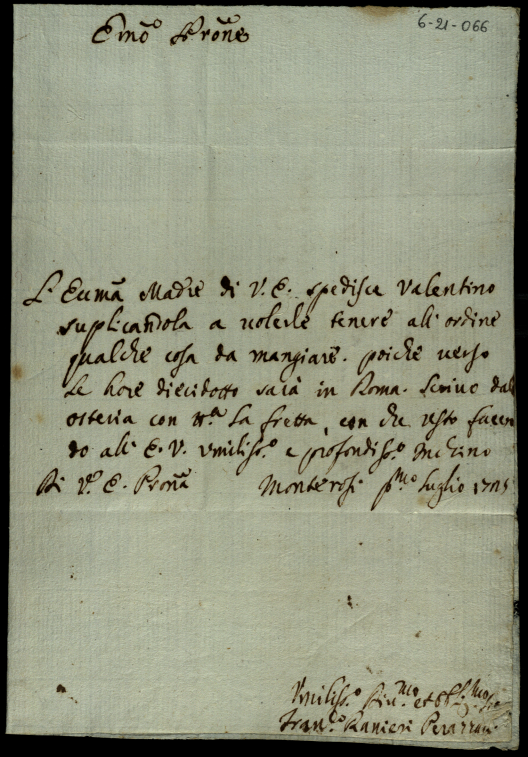 6-21-066
Emõ Prone
L' Eccma Madre di V. E. spedisce Valentino
suplicandola a volerle tenere all' ordine
qualche cosa da mangiare. poiche verso
le hore diecidotto sarà in Roma. Scrivo dall
osteria con tta la fretta, con che resto facen
do all' E. V. umiliss.o e profondiss.o Inchino
Di V.a E. Prona Monterosi pmo Luglio
Umiliss.o Div.mo et
Fran.co Ranieri